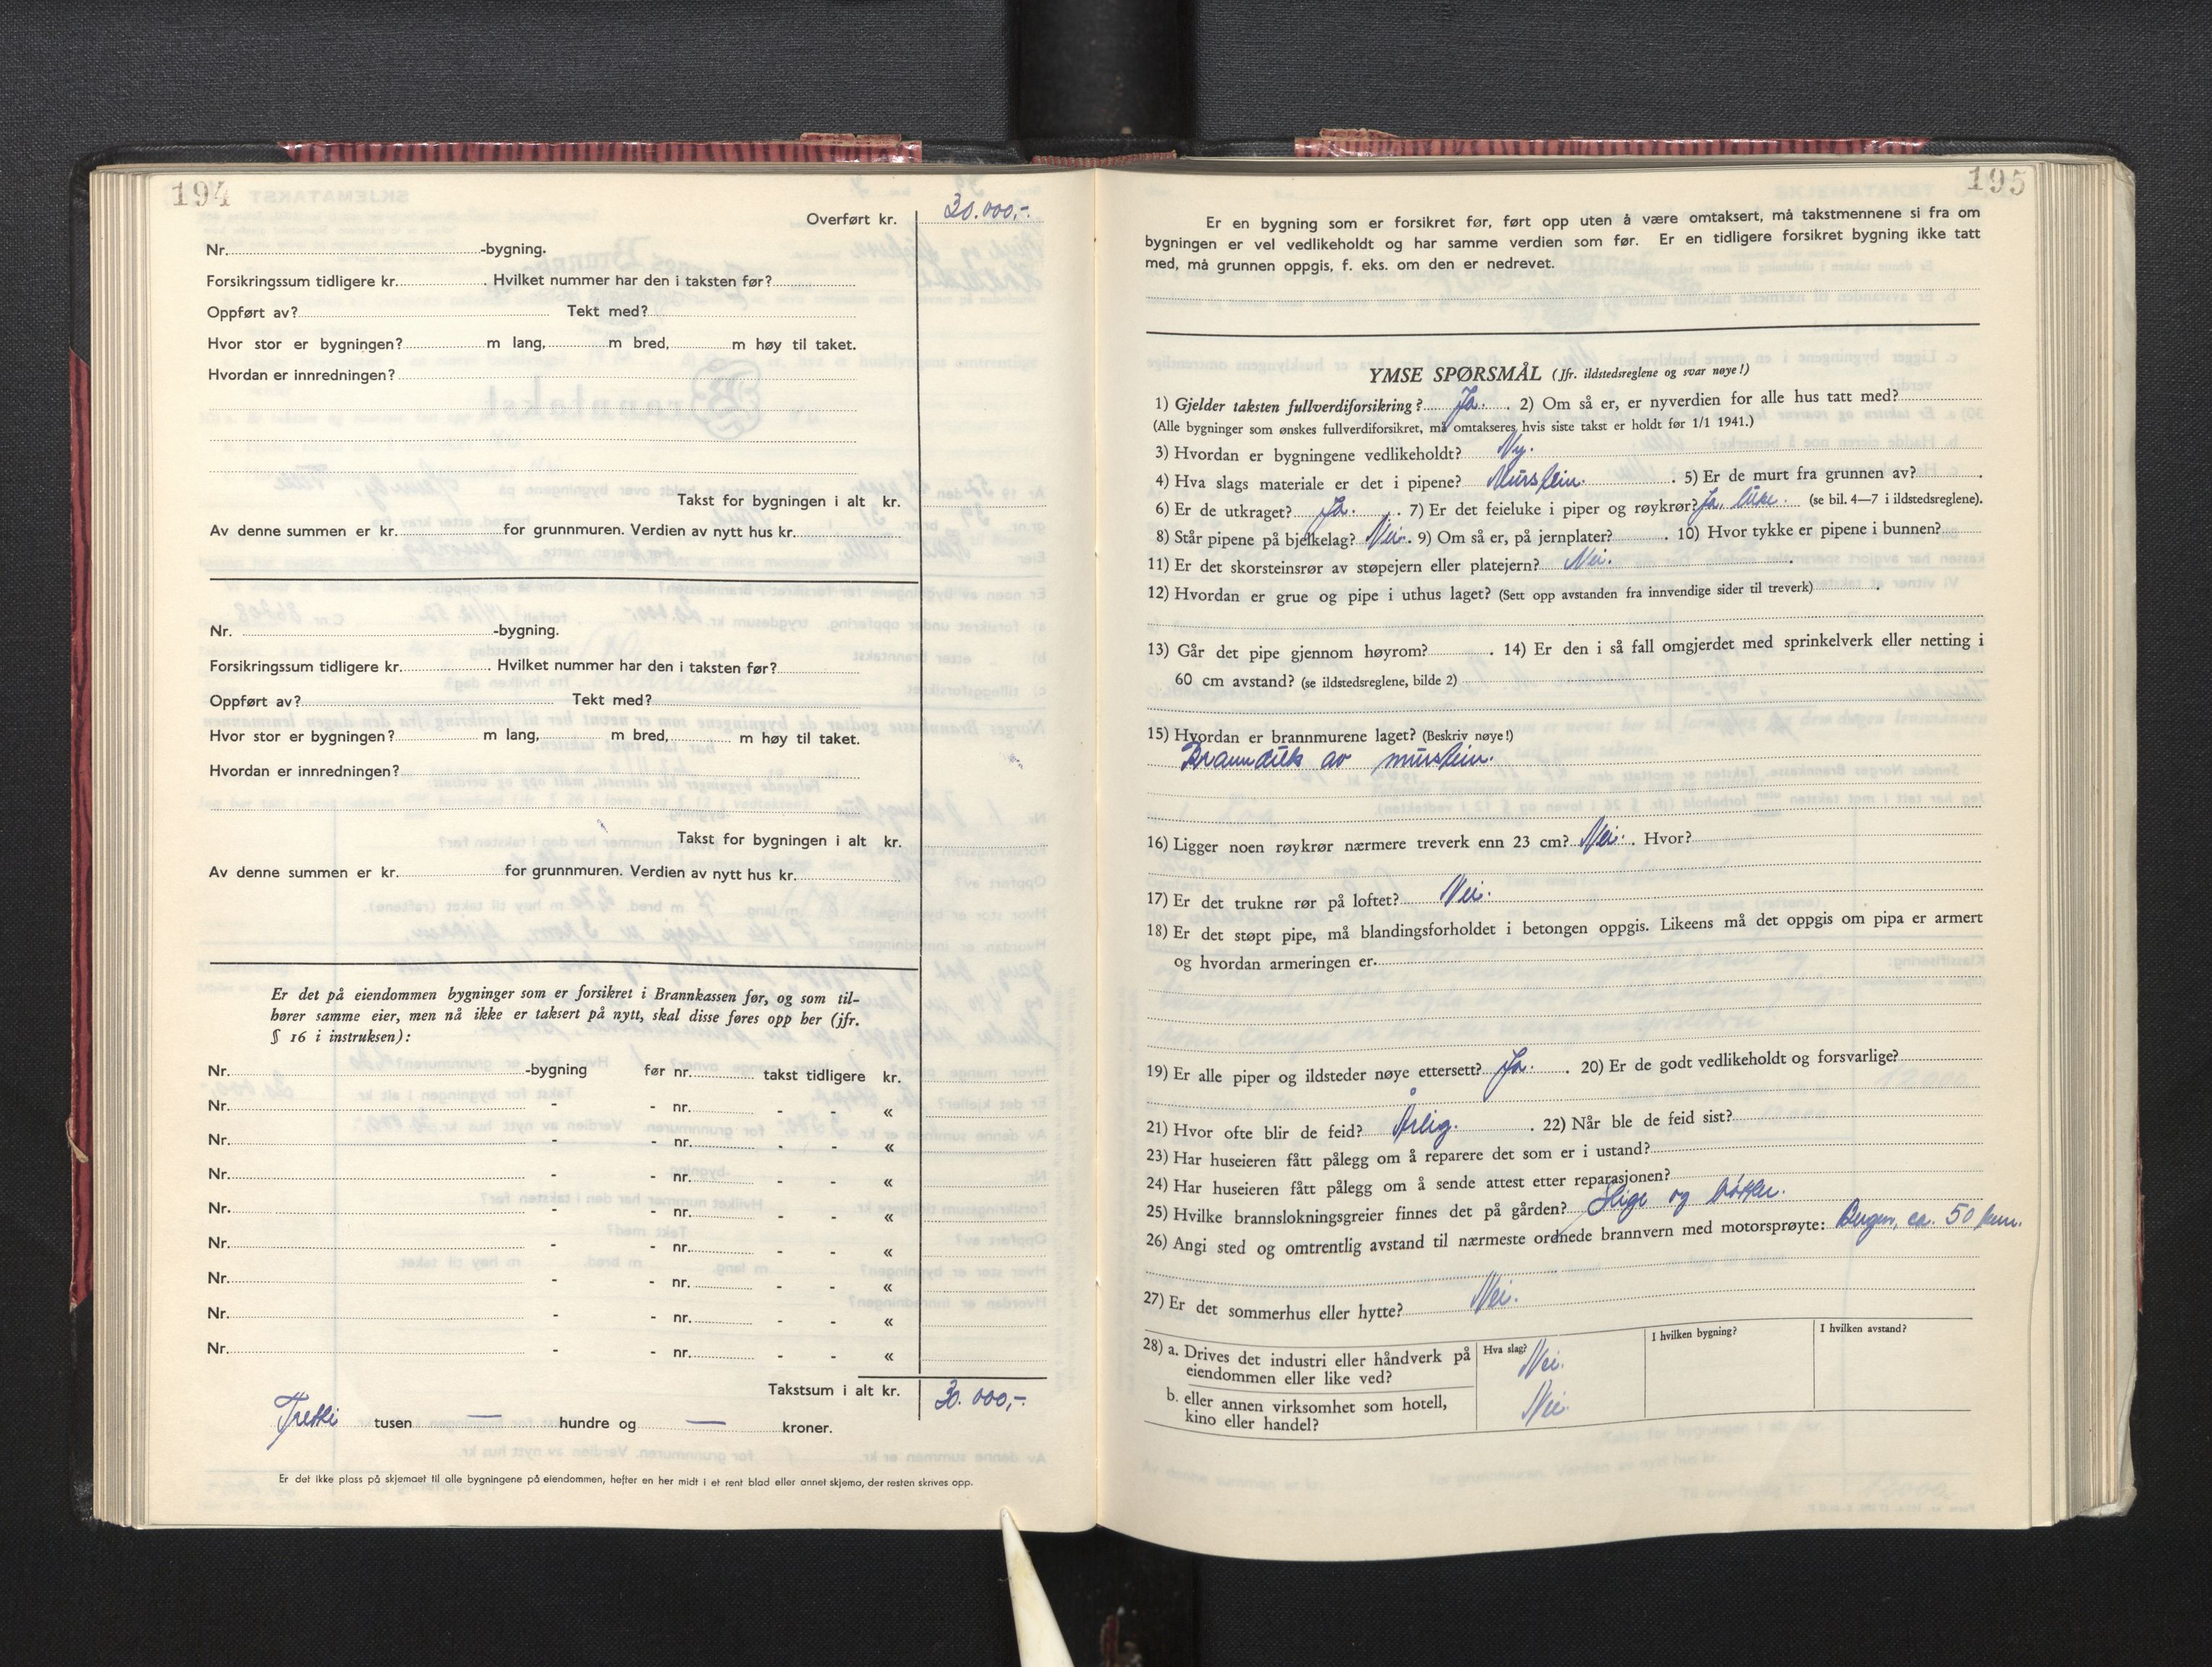 194
Overført kr. 30.000,-
Nr. -bygning.
Forsikringssum tidligere kr. . Hvilket nummer har den i taksten før?
Oppført av? Tekt med?
Hvor stor er bygningen? m lang, m bred, m høy til taket.
Hvordan er innredningen?
Takst for bygningen i alt kr.
Av denne summen er kr. for grunnmuren. Verdien av nytt hus kr.
Nr. -bygning.
Forsikringssum tidligere kr. . Hvilket nummer har den i taksten før?
Oppført av? Tekt med?
Hvor stor er bygningen? m lang, m bred, m høy til taket.
Hvordan er innredningen?
Takst for bygningen i alt kr.
Av denne summen er kr. for grunnmuren. Verdien av nytt hus kr.
Er det på eiendommen bygninger som er forsikret i Brannkassen før, og som til-
hører samme eier, men nå ikke er taksert på nytt, skal disse føres opp her (jfr.
§ 16 i instruksen):
Nr. -bygning før nr. takst tidligere kr.
Nr. - - nr. - - «
Nr. - - nr. - - «
Nr. - - nr. - - «
Nr. - - nr. - - «
Nr. - - nr. - - «
Nr. - - nr. - - «
Nr. - - nr. - - «
Nr. - - nr. - - «
Takstsum i alt kr. 30.000,-
Tretti tusen — hundre og — kroner.
Er det ikke plass på skjemaet til alle bygningene på eiendommen, hefter en her midt i et rent blad eller annet skjema, der resten skrives opp.
195
Er en bygning som er forsikret før, ført opp uten å være omtaksert, må takstmennene si fra om
bygningen er vel vedlikeholdt og har samme verdien som før. Er en tidligere forsikret bygning ikke tatt
med, må grunnen oppgis, f. eks. om den er nedrevet.
YMSE SPØRSMÅL (Jfr. ildstedsreglene og svar nøye!)
1) Gjelder taksten fullverdiforsikring? Ja. . 2) Om så er, er nyverdien for alle hus tatt med?
(Alle bygninger som ønskes fullverdiforsikret, må omtakseres, hvis siste takst er holdt før 1/1 1941.)
3) Hvordan er bygningene vedlikeholdt? Ny.
4) Hva slags materiale er det i pipene? Murstein. . 5) Er de murt fra grunnen av? .
6) Er de utkraget? Ja. . 7) Er det feieluke i piper og røykrør? Ja, luke. (se bil. 4—7 i ildstedsreglene).
8) Står pipene på bjelkelag? Nei. . 9) Om så er, på jernplater? . 10) Hvor tykke er pipene i bunnen?
11) Er det skorsteinsrør av støpejern eller platejern? Nei. .
12) Hvordan er grue og pipe i uthus laget? (Sett opp avstanden fra innvendige sider til treverk) .
13) Går det pipe gjennom høyrom? . 14) Er den i så fall omgjerdet med sprinkelverk eller netting i
60 cm avstand? (se ildstedsreglene, bilde 2)
15) Hvordan er brannmurene laget? (Beskriv nøye!)
Brannduk av murstein.
16) Ligger noen røykrør nærmere treverk enn 23 cm? Nei. . Hvor?
17) Er det trukne rør på loftet? Nei.
18) Er det støpt pipe, må blandingsforholdet i betongen oppgis. Likeens må det oppgis om pipa er armert
og hvordan armeringen er.
19) Er alle piper og ildsteder nøye ettersett? Ja. . 20) Er de godt vedlikeholdt og forsvarlige?
21) Hvor ofte blir de feid? Årlig. . 22) Når ble de feid sist?
23) Har huseieren fått pålegg om å reparere det som er i ustand?
24) Har huseieren fått pålegg om å sende attest etter reparasjonen?
25) Hvilke brannslokningsgreier finnes det på gården? Stige og bøtter.
26) Angi sted og omtrentlig avstand til nærmeste ordnede brannvern med motorsprøyte: Bergen, ca. 50 km.
27) Er det sommerhus eller hytte? Nei.
28) a. Drives det industri eller håndverk på eiendommen eller like ved? Hva slag? Nei. I hvilken bygning? I hvilken avstand?
b. eller annen virksomhet som hotell, kino eller handel? Nei